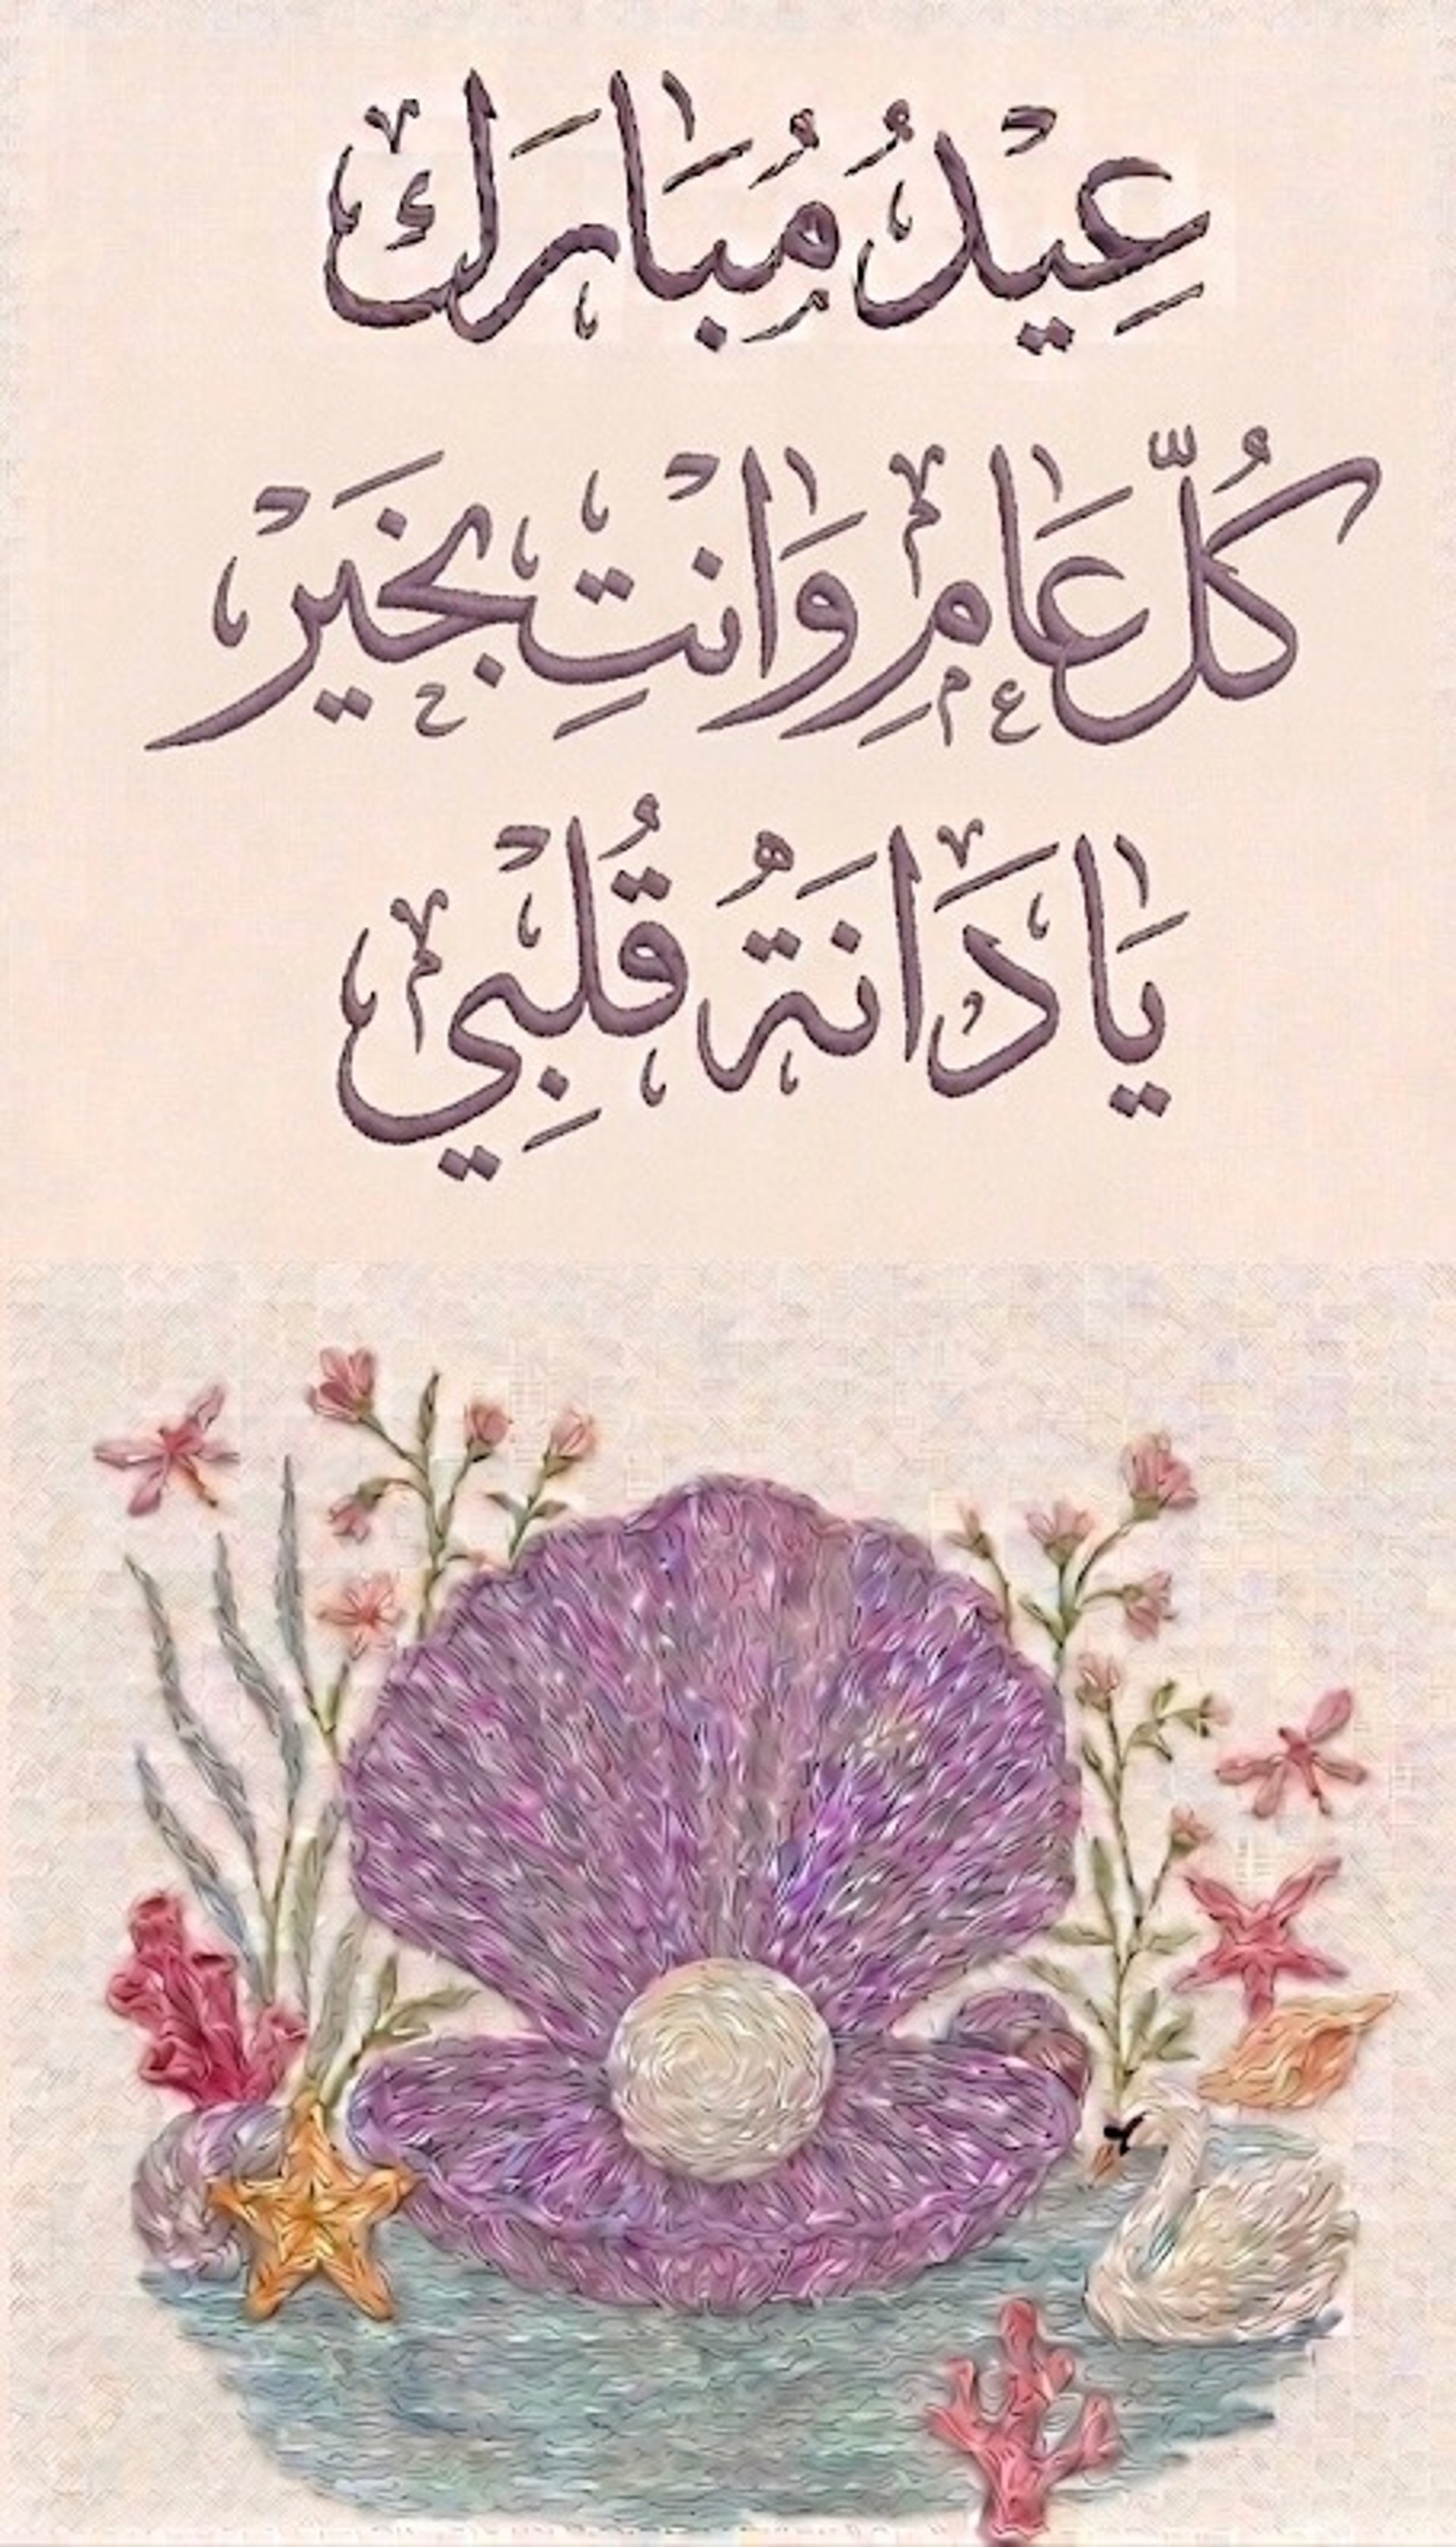 عِيْدُ مُبَارَك
كُلّ عَام وَانْتِ بخَيْر
يَا دَانَةُ قُلْبِي